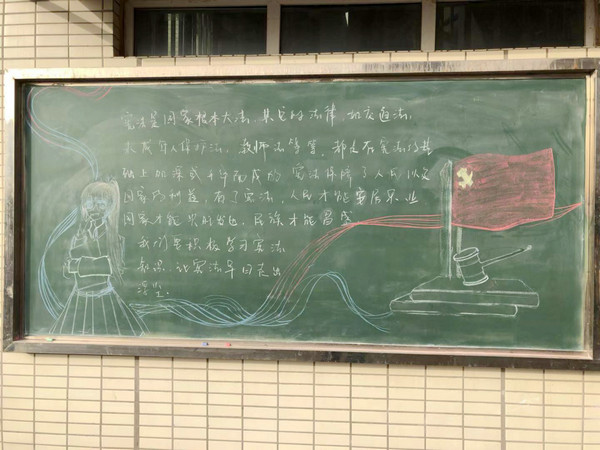 宪法是国家根本大法，其它的法律，如交通法，
未成年人保护法，教师法等等，都是在宪法的基
础上如 而成的 宪法保障了人民以及
国家的利益，有了宪法，人民才能安居乐业
国家才能 发达，民族才能昌盛
我们要积极学习宪法
知识，让宪法